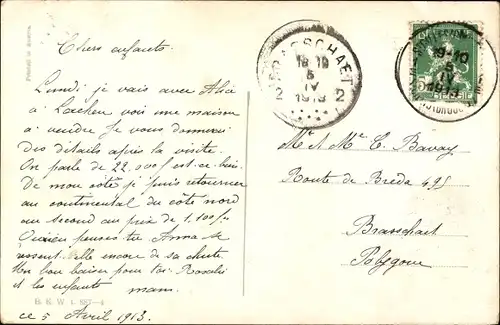 Chers enfants.
Lundi je vais avec Alice
à Laeken voir une maison
à vendre Je vous donnerai
des détails après la visite.
On parle de 22.000 f est-ce bien.
De mon côté je puis retourner
au continental du côté nord
au second au prix de 1.100 frs
Qu'en penses-tu Anna se
ressent-elle encore de sa chute
Un bon baiser pour toi Rosalie
et les enfants mam.
B. K. W. I. 887-4
ce 5 Avril 1913.
BRASSCHAET
18-19
5
IV
1913
2 2
19-20
IV
1913
BELGIE
Mr & Mme C. Bavay
Route de Breda 495
Brasschaet
Polygone